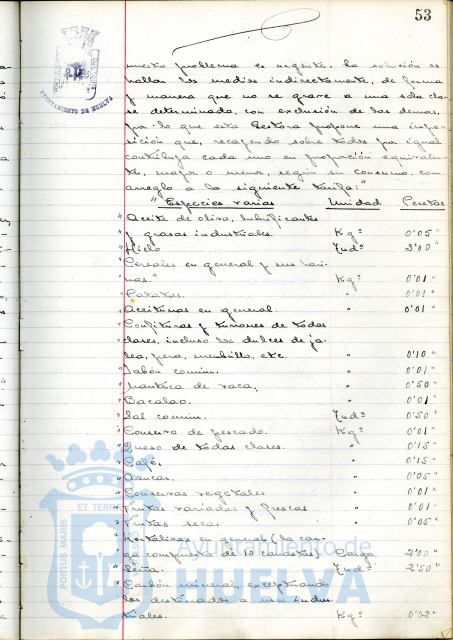 53
AYUNTAMIENTO DE HUELVA
nuestro problema es urgente. La solución es
hallar los medios indirectamente, de forma
y manera que no se grave a una sola cla-
se determinada, con exclusión de las demas,
por lo que esta Gestora propone una impo-
sición que, recayendo sobre todos por igual
contribuya cada uno en proporción equivalen-
te, mayor o menor, según su consumo con
arreglo a la siguiente tarifa:"
"Especies varias Unidad Pesetas
"Aceite de oliva, lubrificantes
y grasas industriales. Kgº 0'05"
"Hielo Qudº 3'00"
"Cereales en general y sus hari-
nas." Kgº 0'01"
"Patatas. " 0'01"
"Aceitunas en general. " 0'01"
"Confituras y turrones de todas
clases, incluso los dulces de ja-
lea, pera, membrillo, etc. " 0'10"
"Jabón común. " 0'01"
"Manteca de vaca. " 0'50"
"Bacalao. " 0'01"
"Sal común. Qudº 0'50"
"Conserva de pescado. Kgº 0'01"
"Queso de todas clases. " 0'15"
"Café. " 0'15"
"Azucar. " 0'05"
"Conservas vegetales " 0'01"
"Frutas variadas y frescas " 0'01"
"Frutas secas " 0'05"
"Hortalizas en general (la car-
ga compuesta de 10 canastos) Carga 2'00"
"Leña. Qudº 2'50"
"Carbón mineral, exceptuando
los destinados a usos indus-
triales. Kgº 0'02"
PORTUS MARIS ET TERRÆ
Ayuntamiento de
HUELVA